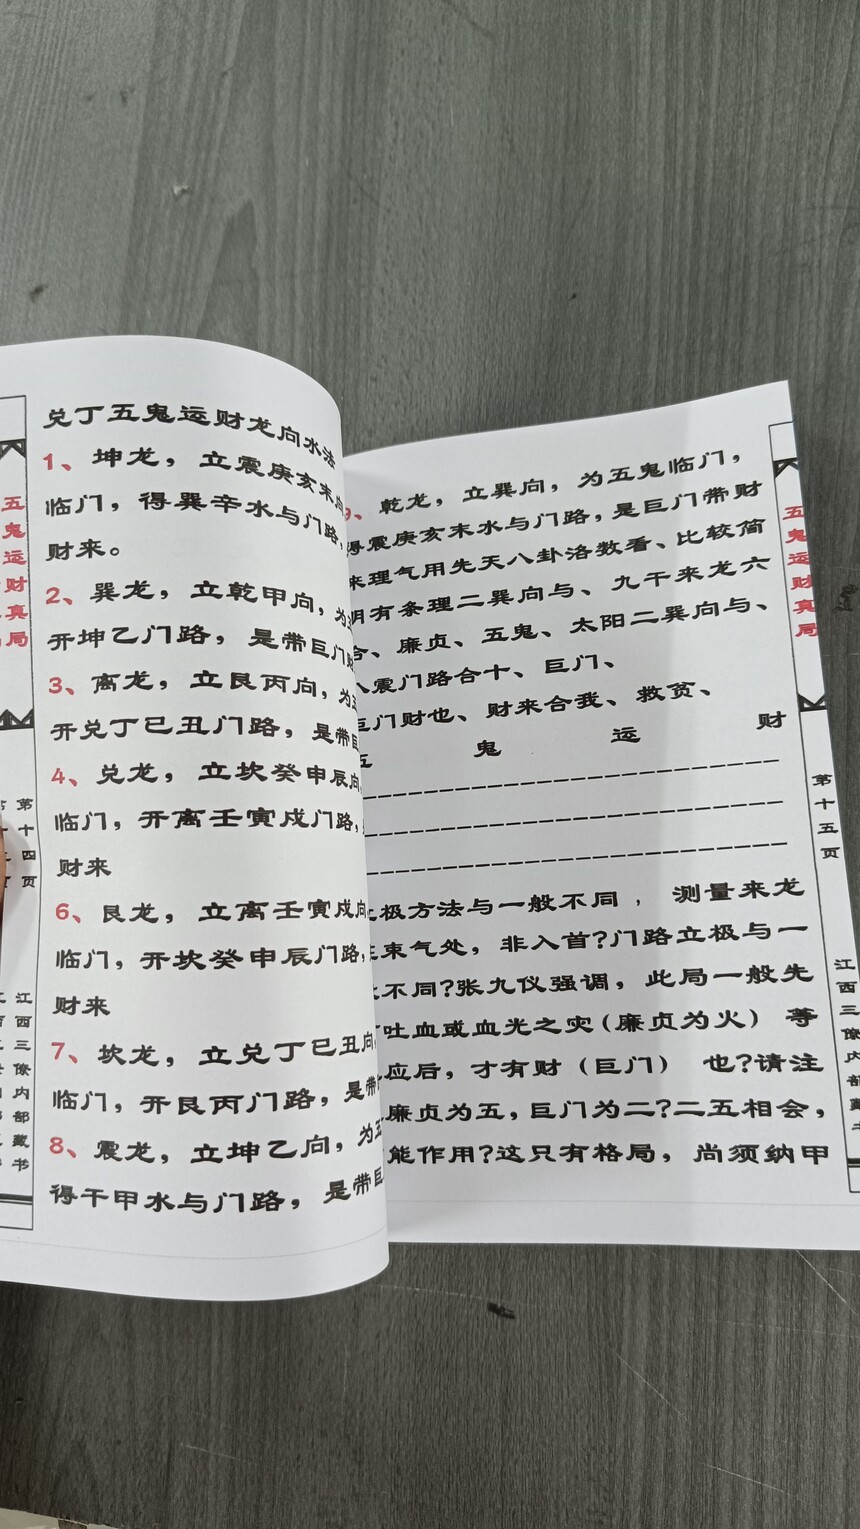 兑丁五鬼运财龙向水法
1、坤龙，立震庚亥未向
临门，得巽辛水与门路，
财来。
2、巽龙，立乾甲向，为
开坤乙门路，是带巨门
3、离龙，立艮丙向，为
开兑丁巳丑门路，是带
4、兑龙，立坎癸申辰向
临门，开离壬寅戍门路，
财来
6、艮龙，立离壬寅戍向
临门，开坎癸申辰门路，
财来
7、坎龙，立兑丁巳丑向
临门，开艮丙门路，是带
8、震龙，立坤乙向，为
得干甲水与门路，是带
五鬼运财真局
第十四页
江西三僚内部藏书
9、乾龙，立巽向，为五鬼临门，
得震庚亥未水与门路，是巨门带财
来理气用先天八卦洛数看、比较简
明有条理二巽向与、九干来龙六
合、廉贞、五鬼、太阳二巽向与、
八震门路合十、巨门、
巨门财也、财来合我、救贫、
五鬼运财
立极方法与一般不同，测量来龙
束气处，非入首?门路立极与一
不同?张九仪强调，此局一般先
吐血或血光之灾(廉贞为火)等
应后，才有财（巨门）也?请注
廉贞为五，巨门为二?二五相会，
能作用?这只有格局，尚须纳甲
五鬼运财真局
第十五页
江西三僚内部藏书